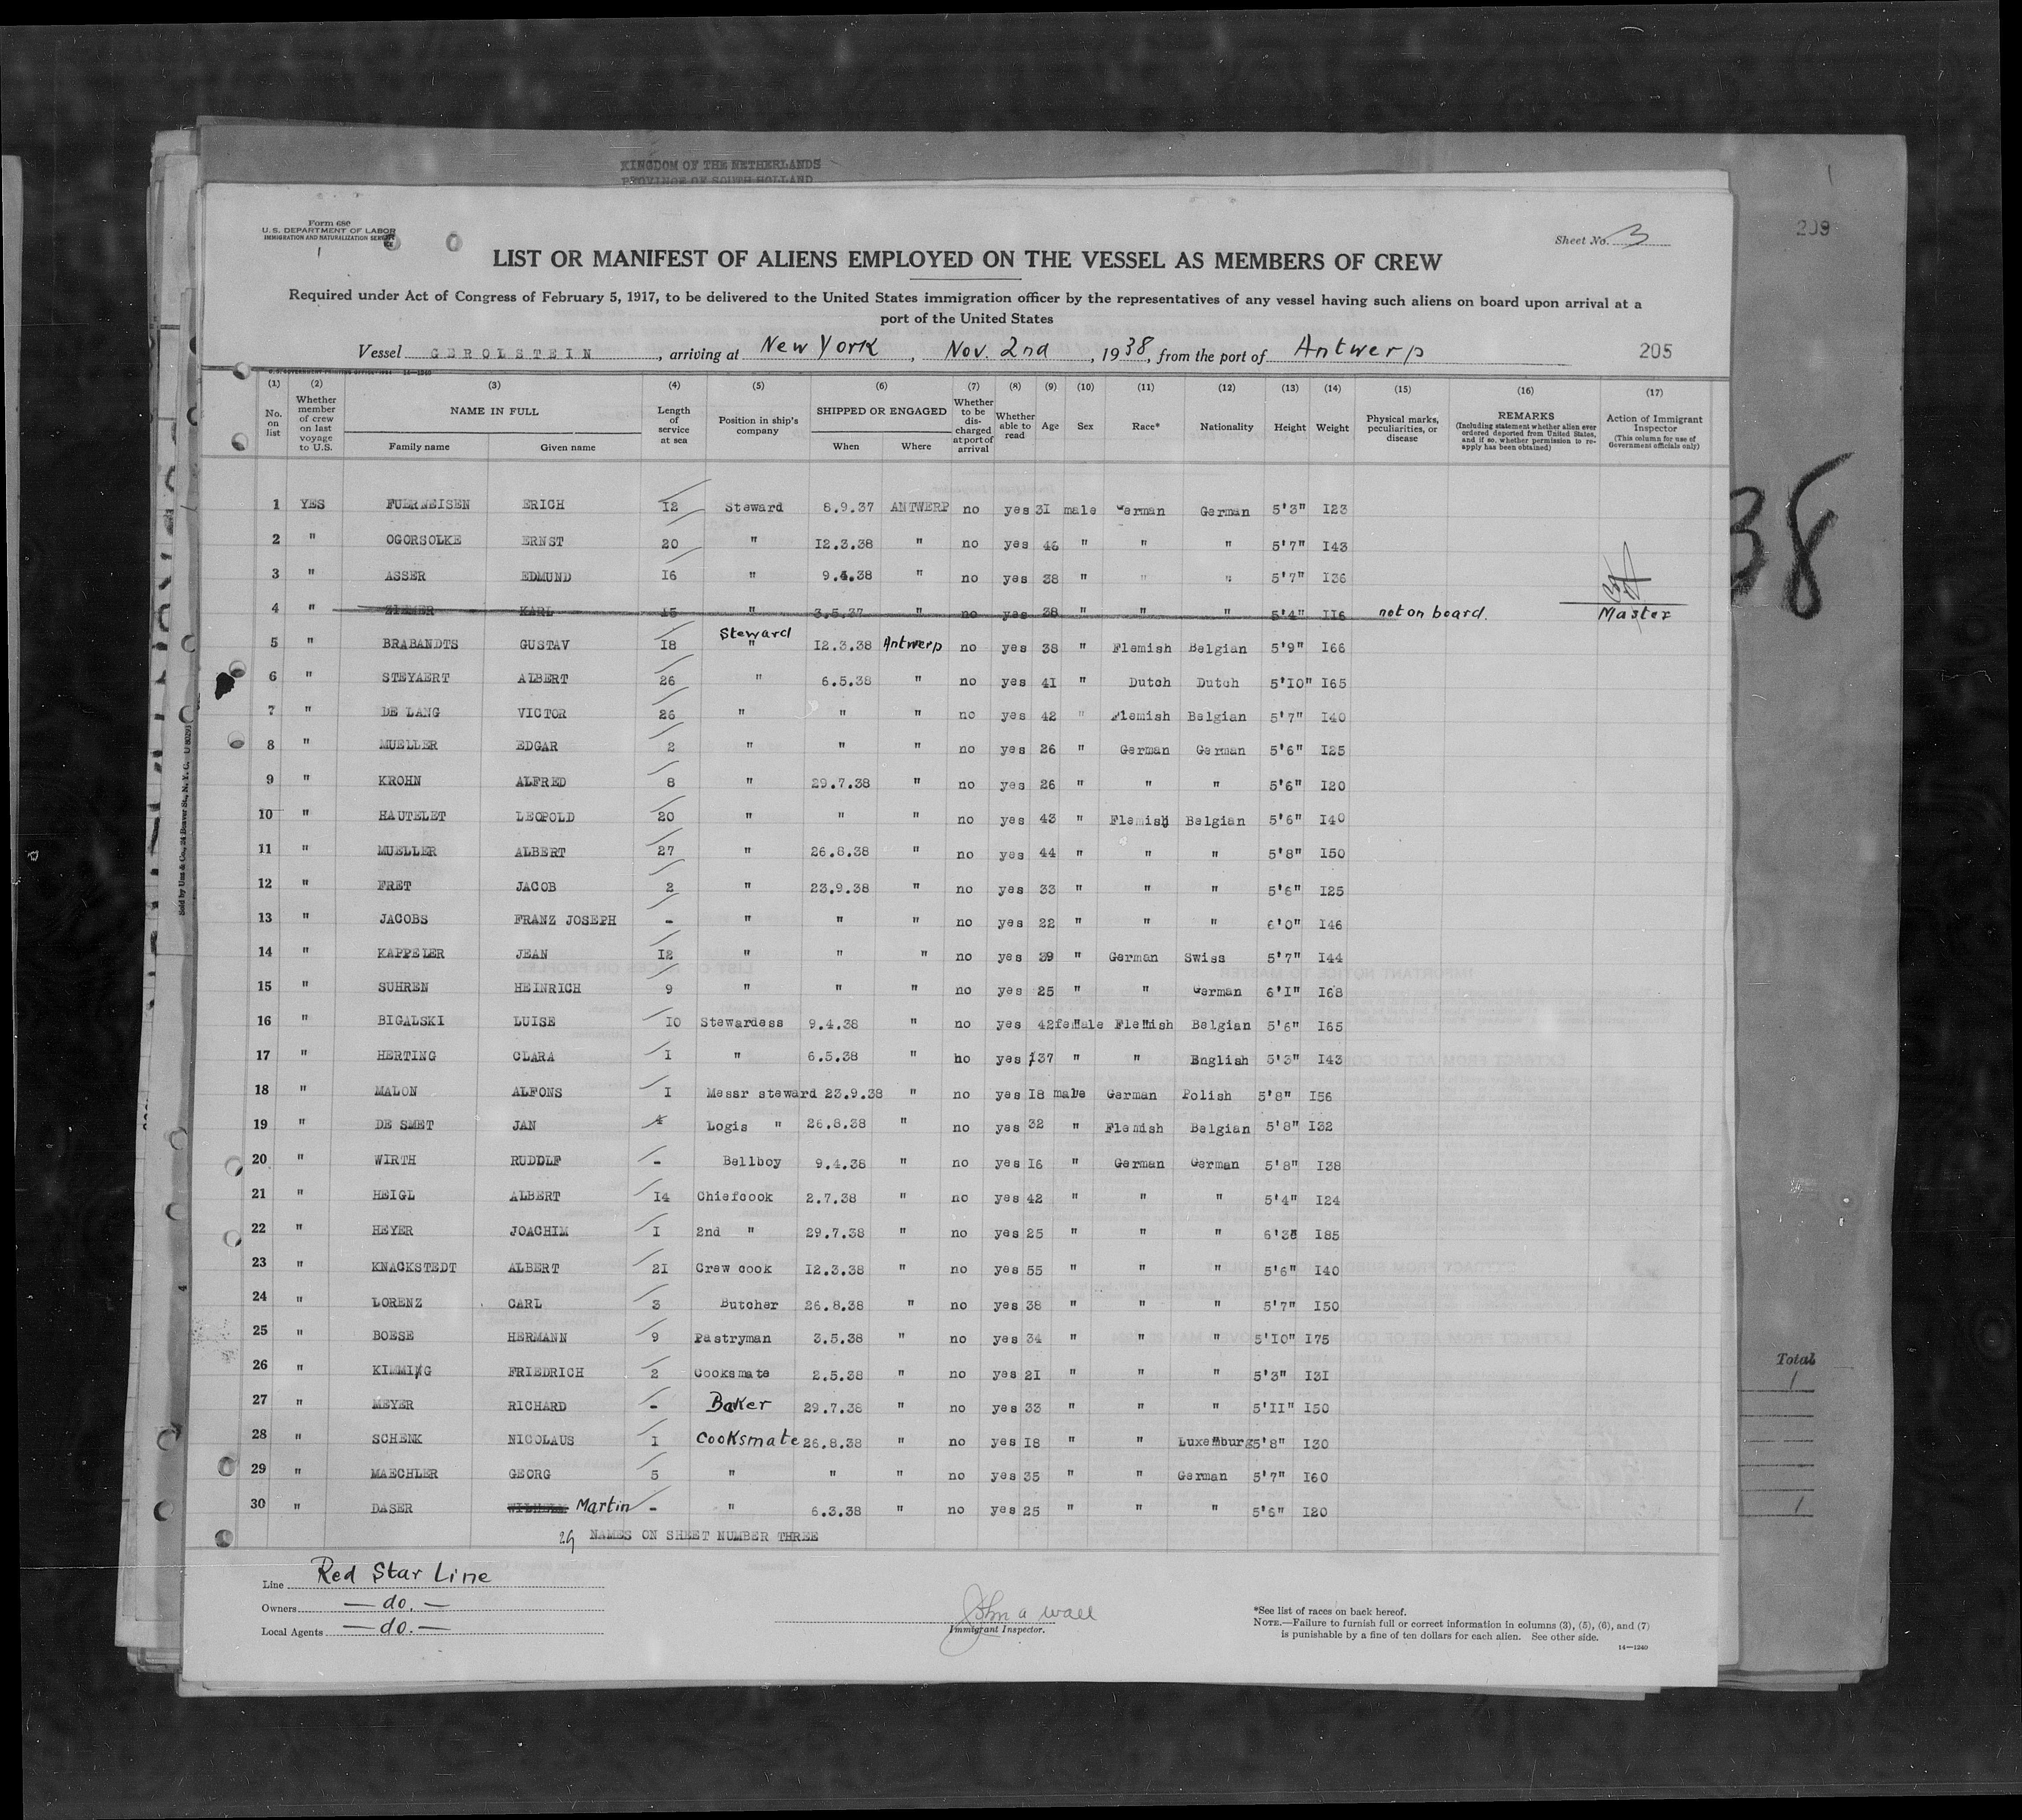 KINGDOM OF THE NETHERLANDS
PROVINCE OF SOUTH HOLLAND
209
38
Form 680
U.S. DEPARTMENT OF LABOR
IMMIGRATION AND NATURALIZATION SERVICE
Sheet No. 3
LIST OR MANIFEST OF ALIENS EMPLOYED ON THE VESSEL AS MEMBERS OF CREW
Required under Act of Congress of February 5, 1917, to be delivered to the United States immigration officer by the representatives of any vessel having such aliens on board upon arrival at a
port of the United States
Vessel GEROLSTEIN, arriving at New York, Nov. 2nd, 1938, from the port of Antwerp 205
(1) (2) (3) (4) (5) (6) (7) (8) (9) (10) (11) (12) (13) (14) (15) (16) (17)
No. on list Whether member of crew on last voyage to U.S. NAME IN FULL Family name Given name Length of service at sea Position in ship's company SHIPPED OR ENGAGED When Where Whether to be discharged at port of arrival Whether able to read Age Sex Race* Nationality Height Weight Physical marks, peculiarities, or disease REMARKS (Including statement whether alien ever ordered deported from United States, and if so, whether permission to reapply has been obtained) Action of Immigrant Inspector (This column for use of Government officials only)
1 YES FUERNEISEN ERICH I2 Steward 8.9.37 ANTWERP no yes 3I male German German 5'3" I23
2 " OGORSOLKE ERNST 20 " I2.3.38 " no yes 46 " " " 5'7" I43
3 " ASSER EDMUND I6 " 9.4.38 " no yes 38 " " " 5'7" I36
4 " ZIEMER KARL I5 " 3.5.37 " no yes 38 " " " 5'4" II6 not on board. Master
5 " BRABANDTS GUSTAV I8 Steward " I2.3.38 Antwerp no yes 38 " Flemish Belgian 5'9" I66
6 " STEYAERT ALBERT 26 " 6.5.38 " no yes 41 " Dutch Dutch 5'IO" I65
7 " DE LANG VICTOR 26 " " " no yes 42 " Flemish Belgian 5'7" I40
8 " MUELLER EDGAR 2 " " " no yes 26 " German German 5'6" I25
9 " KROHN ALFRED 8 " 29.7.38 " no yes 26 " " " 5'6" I20
10 " HAUTELET LEOPOLD 20 " " " no yes 43 " Flemish Belgian 5'6" I40
11 " MUELLER ALBERT 27 " 26.8.38 " no yes 44 " " " 5'8" I50
12 " FRET JACOB 2 " 23.9.38 " no yes 33 " " " 5'6" I25
13 " JACOBS FRANZ JOSEPH - " " " no yes 22 " " " 6'0" I46
14 " KAPPELER JEAN I2 " " " no yes 39 " German Swiss 5'7" I44
15 " SUHREN HEINRICH 9 " " " no yes 25 " " German 6'I" I68
16 " BIGALSKI LUISE IO Stewardess 9.4.38 " no yes 42 female Flemish Belgian 5'6" I65
17 " HERTING CLARA I " 6.5.38 " no yes 37 " " English 5'3" I43
18 " MALON ALFONS I Messr steward 23.9.38 " no yes I8 male German Polish 5'8" I56
19 " DE SMET JAN 4 Logis " 26.8.38 " no yes 32 " Flemish Belgian 5'8" I32
20 " WIRTH RUDOLF - Bellboy 9.4.38 " no yes I6 " German German 5'8" I38
21 " HEIGL ALBERT I4 Chiefcook 2.7.38 " no yes 42 " " " 5'4" I24
22 " HEYER JOACHIM I 2nd " 29.7.38 " no yes 25 " " " 6'3" I85
23 " KNACKSTEDT ALBERT 2I Crew cook I2.3.38 " no yes 55 " " " 5'6" I40
24 " LORENZ CARL 3 Butcher 26.8.38 " no yes 38 " " " 5'7" I50
25 " BOESE HERMANN 9 Pastryman 3.5.38 " no yes 34 " " " 5'IO" I75
26 " KIMMIG FRIEDRICH 2 Cooksmate 2.5.38 " no yes 2I " " " 5'3" I3I
27 " MEYER RICHARD - Baker 29.7.38 " no yes 33 " " " 5'II" I50
28 " SCHENK NICOLAUS I Cooksmate 26.8.38 " no yes I8 " " Luxemburg 5'8" I30
29 " MAECHLER GEORG 5 " " " no yes 35 " " German 5'7" I60
30 " DASER WILHELM Martin - " 6.3.38 " no yes 25 " " " 5'6" I20
29 NAMES ON SHEET NUMBER THREE
Line Red Star Line
Owners — do. —
Local Agents — do. —
John A Wall
Immigrant Inspector.
*See list of races on back hereof.
NOTE.—Failure to furnish full or correct information in columns (3), (5), (6), and (7)
is punishable by a fine of ten dollars for each alien. See other side.
14—1240
Total
1
1